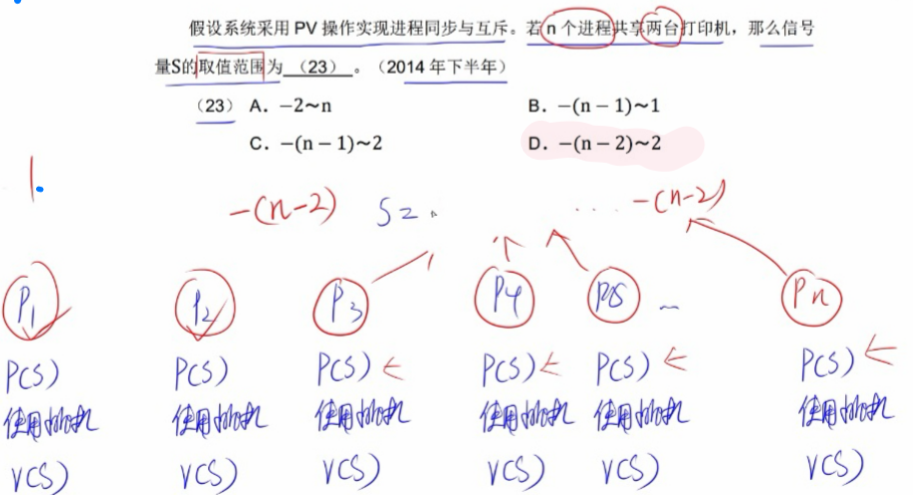 假设系统采用 PV 操作实现进程同步与互斥。若 n 个进程共享两台打印机，那么信号
量S的取值范围为 （23） 。（2014 年下半年）
（23） A．−2～n B．−(n − 1)～1
C．−(n − 1)～2 D．−(n − 2)～2
1.
-(n-2) S= .... -(n-2)
P1 P2 P3 P4 P5 ... Pn
P(S) P(S) P(S) P(S) P(S) P(S)
使用打印机 使用打印机 使用打印机 使用打印机 使用打印机 使用打印机
V(S) V(S) V(S) V(S) V(S) V(S)